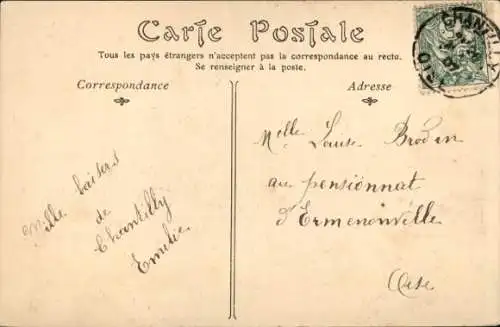 Carte Postale
Tous les pays étrangers n'acceptent pas la correspondance au recto.
Se renseigner à la poste.
Correspondance
Adresse
Mille baisers
de
Chantilly
Emilie
Melle Louise Brodin
au pensionnat
d'Ermenonville
Oise
CHANTILLY